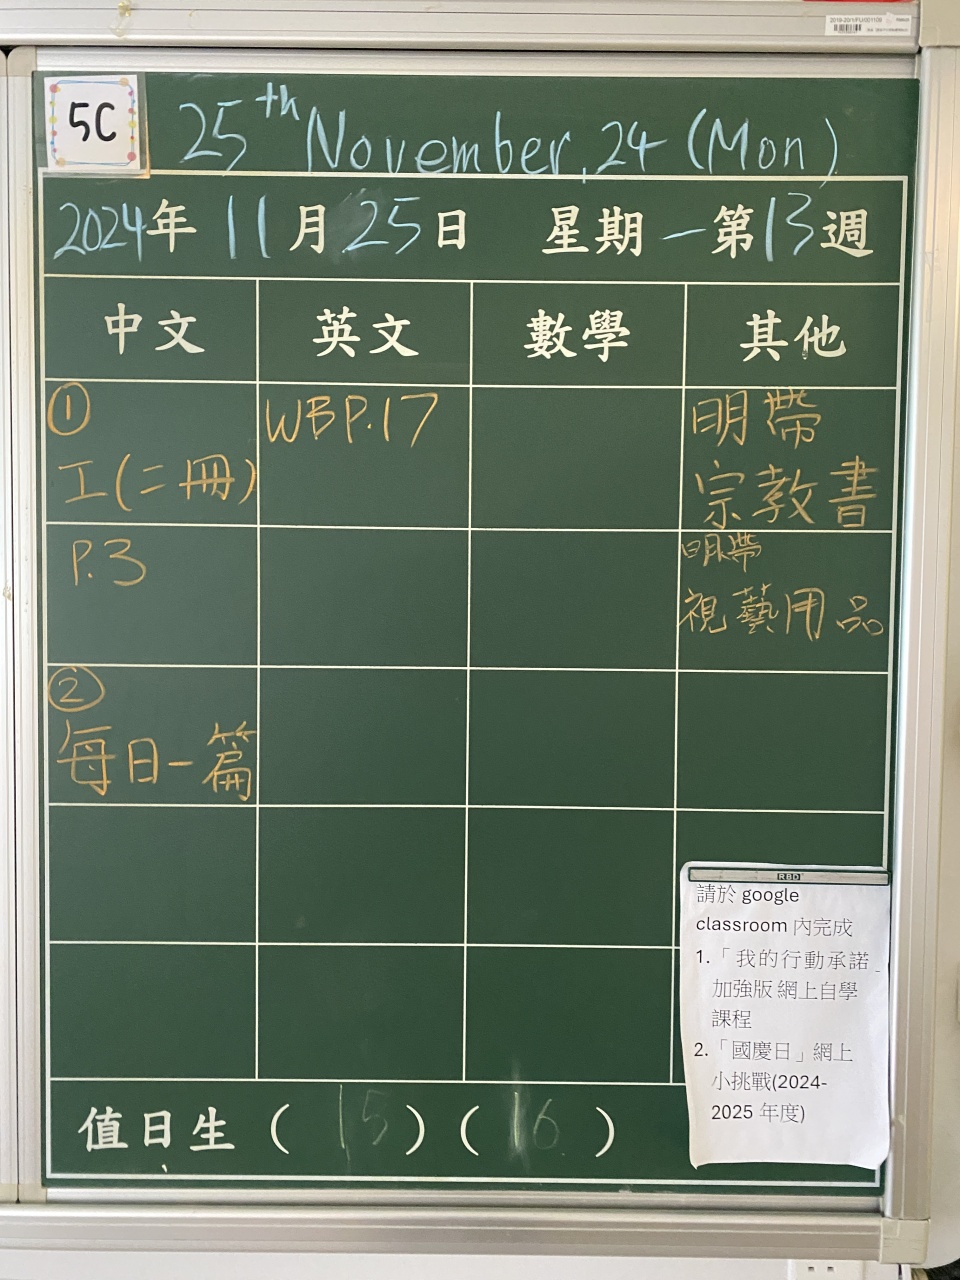 5C
25th November, 24 (Mon)
2024年 11月 25日 星期一第13週
中文 英文 數學 其他
①
工(二冊)
P.3
②
每日一篇
WBP.17
明帶
宗教書
明帶
視藝用品
RBD
請於 google
classroom 內完成
1.「我的行動承諾
加強版 網上自學
課程
2.「國慶日」網上
小挑戰(2024-
2025 年度)
值日生 ( 15 ) ( 16 )